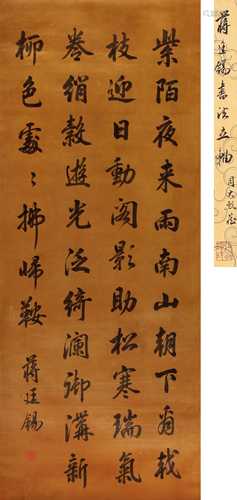 蔣廷錫書法立軸
紫陌夜来雨南山朝下看戟
枝迎日動閣影助松寒瑞氣
卷綃縠遊光泛綺瀾御溝新
柳色處〻拂歸鞍
蔣廷錫